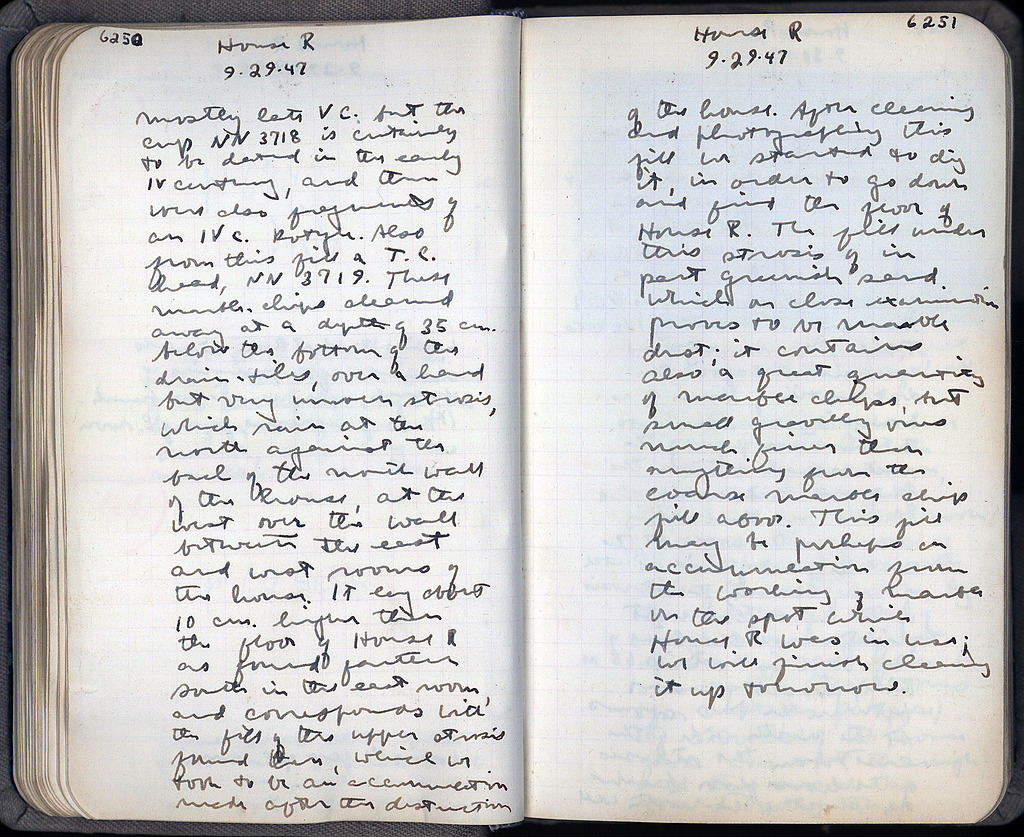 6250
House R
9.29.47
mostly late V C. but the
cup NN 3718 is certainly
to be dated in the early
IV century, and there
were also fragments of
an IV C. kotyle. Also
from this fill a T.C.
head, NN 3719. These
marble chips cleaned
away at a depth of 35 cm.
below the bottom of the
drain-tiles, over a hard
but very uneven strosis,
which runs at the
north against the
back of the north wall
of the house, at the
west over the wall
between the east
and west rooms of
the house. It lay about
10 cm. higher than
the floor of House R
as found farther
south in the east room,
and corresponds with
the fill of the upper strosis
found here, which we
took to be an accumulation
made after the destruction
6251
House R
9.29.47
of the house. After cleaning
and photographing this
fill we started to dig
it, in order to go down
and find the floor of
House R. The fill under
this strosis is in
part greenish sand
which on close examination
proves to be marble
dust; it contains
also a great quantity
of marble chips, but
small gravelly ones
much finer than
anything from the
coarse marble chip
fill above. This fill
may be perhaps an
accumulation from
the working of marble
on the spot while
House R was in use;
we will finish cleaning
it up tomorrow.